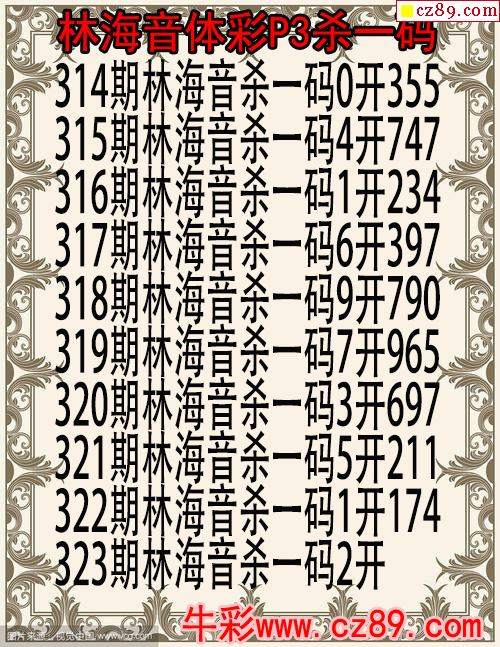 cz89.com
林海音体彩P3杀一码
314期林海音杀一码0开355
315期林海音杀一码4开747
316期林海音杀一码1开234
317期林海音杀一码6开397
318期林海音杀一码9开790
319期林海音杀一码7开965
320期林海音杀一码3开697
321期林海音杀一码5开211
322期林海音杀一码1开174
323期林海音杀一码2开
牛彩www.cz89.com
图片来源：视觉中国 www.vcg.com